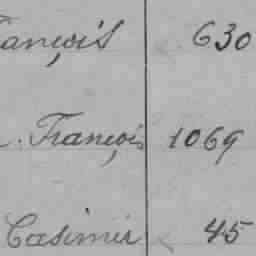 ançois 630
. François 1069
Casimir 45